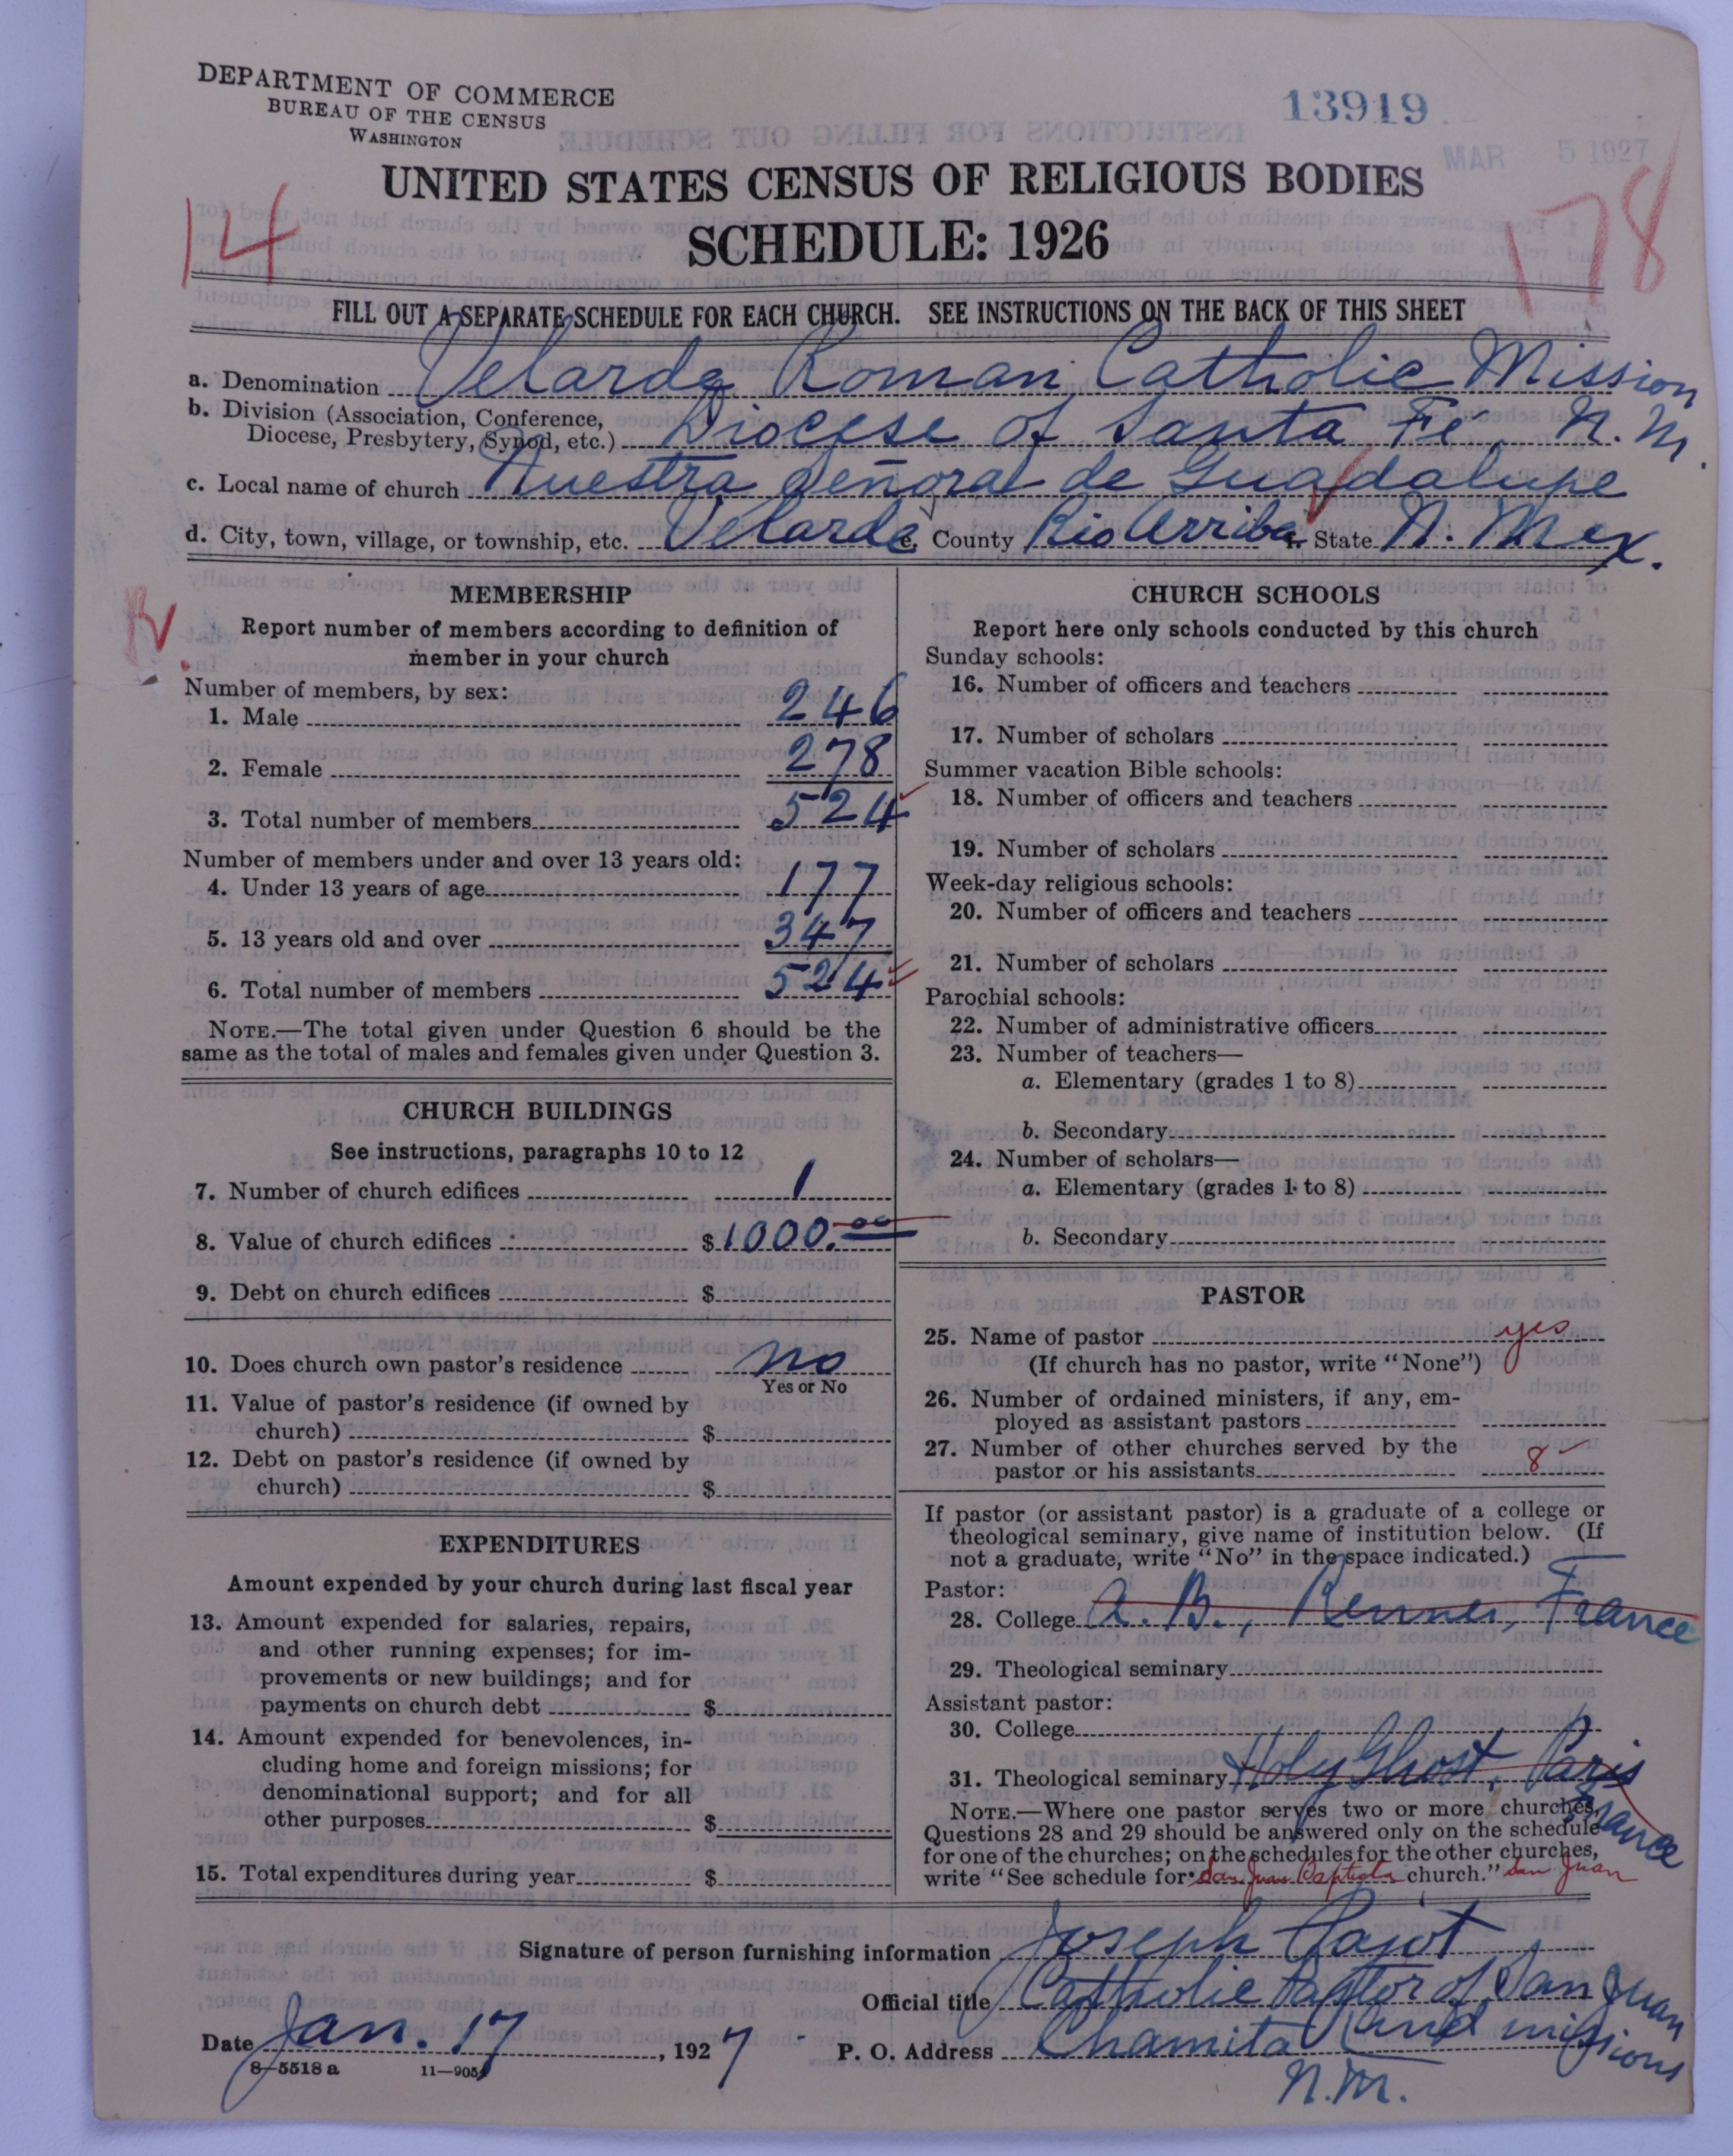 DEPARTMENT OF COMMERCE
BUREAU OF THE CENSUS
WASHINGTON
13919
MAR 5 1927
UNITED STATES CENSUS OF RELIGIOUS BODIES
SCHEDULE: 1926
14
178
FILL OUT A SEPARATE SCHEDULE FOR EACH CHURCH. SEE INSTRUCTIONS ON THE BACK OF THIS SHEET
a. Denomination Velarde Roman Catholic Mission
b. Division (Association, Conference, Diocese, Presbytery, Synod, etc.) Diocese of Santa Fe, N. M.
c. Local name of church Nuestra Señora de Guadalupe
d. City, town, village, or township, etc. Velarde e. County Rio Arriba f. State N. Mex.
MEMBERSHIP
Report number of members according to definition of
member in your church
Number of members, by sex:
1. Male 246
2. Female 278
3. Total number of members 524
Number of members under and over 13 years old:
4. Under 13 years of age 177
5. 13 years old and over 347
6. Total number of members 524
NOTE.—The total given under Question 6 should be the
same as the total of males and females given under Question 3.
CHURCH BUILDINGS
See instructions, paragraphs 10 to 12
7. Number of church edifices 1
8. Value of church edifices $ 1000.00
9. Debt on church edifices $
10. Does church own pastor's residence no
Yes or No
11. Value of pastor's residence (if owned by
church) $
12. Debt on pastor's residence (if owned by
church) $
EXPENDITURES
Amount expended by your church during last fiscal year
13. Amount expended for salaries, repairs,
and other running expenses; for im-
provements or new buildings; and for
payments on church debt $
14. Amount expended for benevolences, in-
cluding home and foreign missions; for
denominational support; and for all
other purposes $
15. Total expenditures during year $
CHURCH SCHOOLS
Report here only schools conducted by this church
Sunday schools:
16. Number of officers and teachers
17. Number of scholars
Summer vacation Bible schools:
18. Number of officers and teachers
19. Number of scholars
Week-day religious schools:
20. Number of officers and teachers
21. Number of scholars
Parochial schools:
22. Number of administrative officers
23. Number of teachers—
a. Elementary (grades 1 to 8)
b. Secondary
24. Number of scholars—
a. Elementary (grades 1 to 8)
b. Secondary
PASTOR
25. Name of pastor yes
(If church has no pastor, write "None")
26. Number of ordained ministers, if any, em-
ployed as assistant pastors
27. Number of other churches served by the
pastor or his assistants 8
If pastor (or assistant pastor) is a graduate of a college or
theological seminary, give name of institution below. (If
not a graduate, write "No" in the space indicated.)
Pastor:
28. College A. B., Rennes, France
29. Theological seminary
Assistant pastor:
30. College
31. Theological seminary Holy Ghost, Paris
France
NOTE.—Where one pastor serves two or more churches,
Questions 28 and 29 should be answered only on the schedule
for one of the churches; on the schedules for the other churches,
write "See schedule for San Juan Baptista church." San Juan
Signature of person furnishing information Joseph Pajot
Official title Catholic Pastor of San Juan
and missions
Date Jan. 17, 1927
P. O. Address Chamita
N.M.
8-5518 a
11-9051